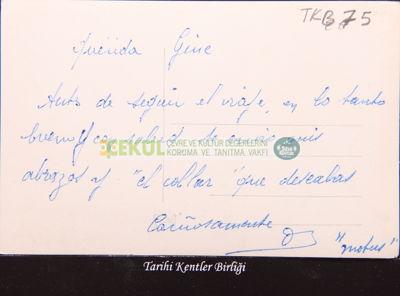 TKB 75
Querida Gine
Antes de seguir el viaje, en lo tanto
bueno y con salud te envio mis
ÇEKÜL ÇEVRE VE KÜLTÜR DEĞERLERİNİ
KORUMA VE TANITMA VAKFI
abrazos y "el collar" que deseabas
Cariñosamente
Tarihi Kentler Birliği